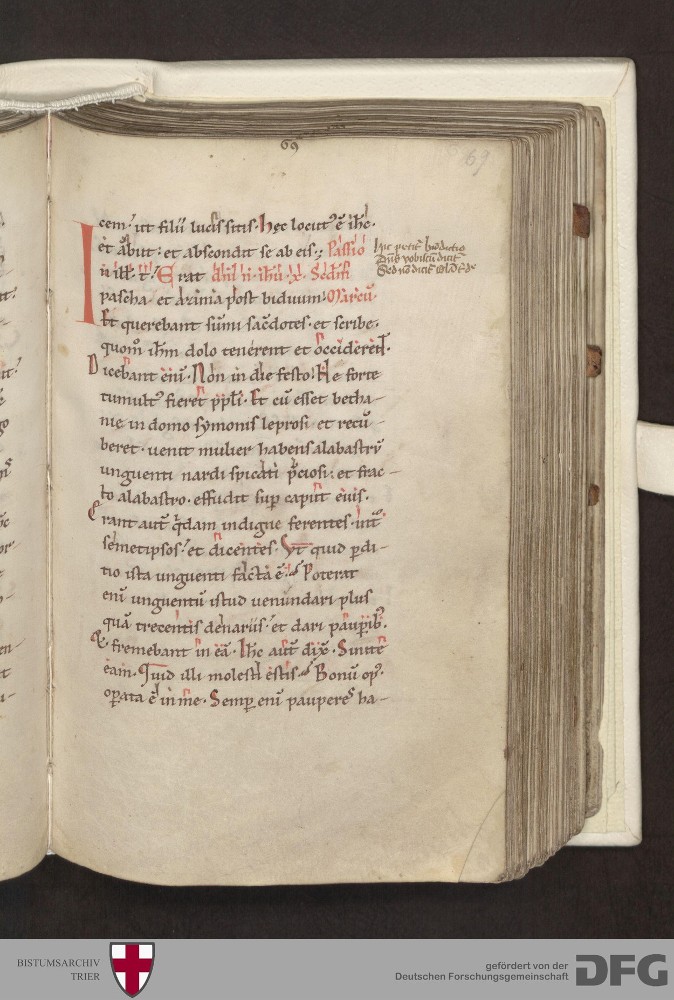 69
69
cem. ut filii lucis sitis. Hęc locut᷒ ē ihc̄.
et abiit: et abscondit se ab eis. Passio
in ill. t. Erat dn̄i n̄ ihū x̄. Sed̄m
pascha. et azima post biduum. Marcū.
Et querebant sūmi sac̄dotes. et scribe.
quom̄ ihm̄ dolo tenerent et occiderent.
Dicebant enī. Non in die festo. Ne forte
tumult᷒ fieret ppl̄i. Et cū esset betha-
nię in domo symonis leprosi et recū-
beret. uenit mulier habens alabastrū
unguenti nardi spicati p̄ciosi: et frac-
to alabastro. effudit sup̄ caput eius.
Erant aut̄ q̇dam indigne ferentes. int̄
semetipsos. et dicentes. Vt quid p̄di-
tio ista unguenti facta ē. Poterat
enī unguentū istud uenundari plus
quā trecentis denariis. et dari paup̄ib᷒.
Et fremebant in eā. Ihc̄ aut̄ dix̄. Sinite
eam. Quid illi molesti estis. Bonū op᷒.
op̄ata ē in me. Semp̄ enī pauperes ha-
Hic petit̄ b̄n̄dictio
Dn̄s vobiscū dicit̄
Sed nō dicit̄
BISTUMSARCHIV
TRIER
gefördert von der
Deutschen Forschungsgemeinschaft
DFG